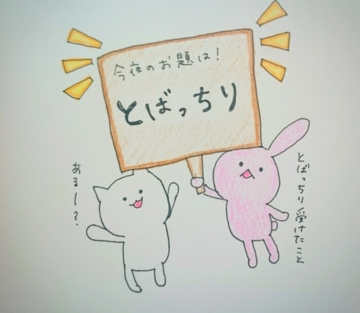 今夜のお題は!
とばっちり
とばっちり受けたこと
あるー?